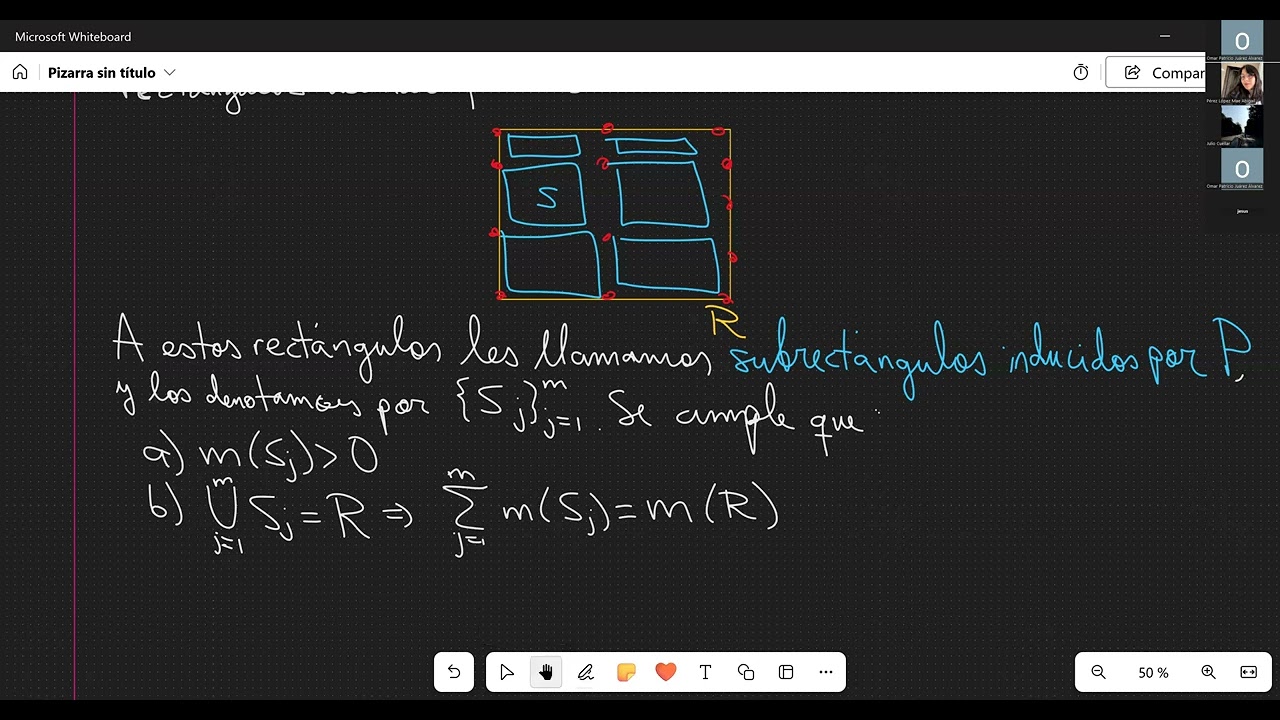 Microsoft Whiteboard
Pizarra sin título
Compar
O
Omar Patricio Juárez Alvarez
Julio Cuellar
O
Omar Patricio Juárez Alvarez
jesus
S
R
A estos rectángulos les llamamos subrectángulos inducidos por P,
y los denotamos por {Sj}ᵐj=1. Se cumple que:
a) m(Sj)>0
b) ⋃ᵐj=1 Sj=R ⇒ ∑ᵐj=1 m(Sj)=m(R)
50 %